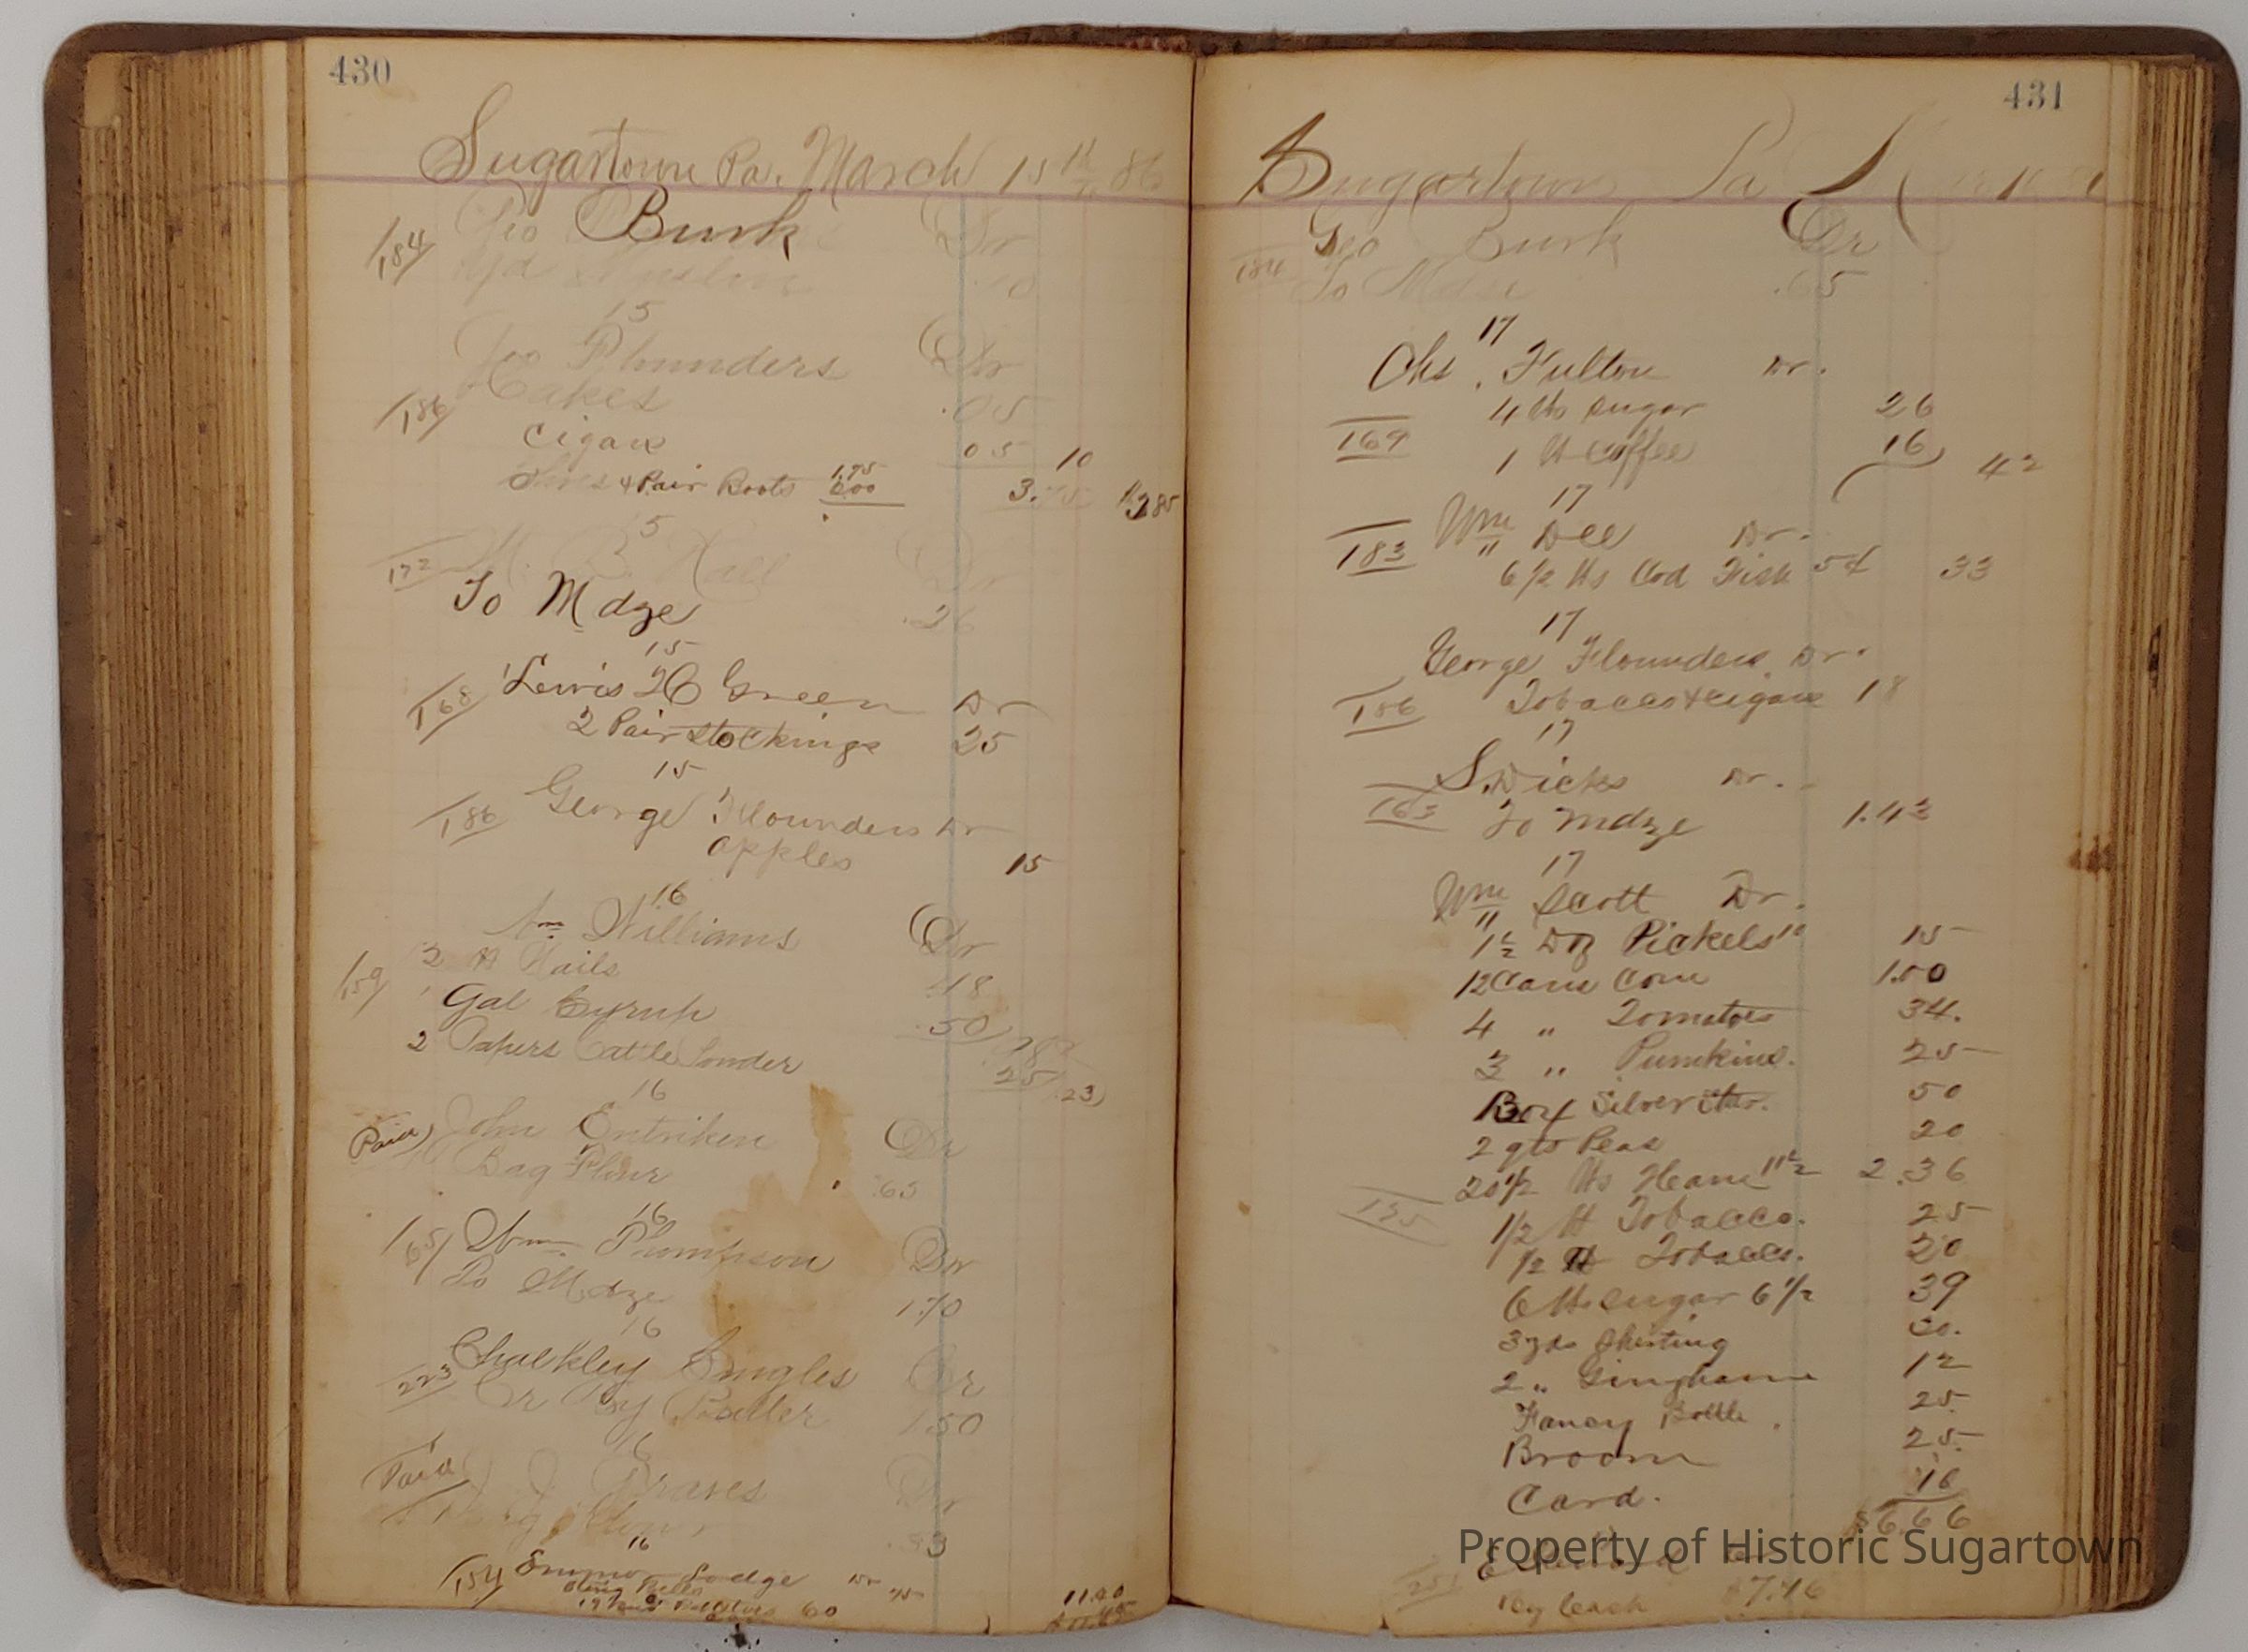 430
Sugartown Pa. March 15th 86
184 Geo Burk Dr
Muslin 10
15
Geo Flounders Dr
Cakes .05
186
Cigars 05 10
Shoes & Pair Boots 1.75 2.00 3.75 $3.85
15
172 M. B. Hall Dr
To Mdze .26
15
168 Lewis H Green Dr
2 Pair Stockings 25
15
186 George Flounders Dr
apples 15
16
Wm Williams Dr
159 Nails
1 Gal Syrup .50
2 Papers Cattle Powder 25
16
Paid John Entriken Dr
Bag Flour .65
16
165 Wm Thompson Dr
To Mdze 1.70
16
223 Chalkley Cr
Cr By 1.50
16
Paid J Graves Dr
Bag Flour .83
16
154 Emmor Lodge Dr
60
431
Sugartown Pa
184 Geo Burk Dr
To Mdse .65
17
Chs. Fulton Dr.
4 lbs Sugar 26
169
1 lb Coffee 16 42
17
183 Wm Dee Dr.
6 1/2 lbs Cod Fish 5¢ 33
17
George Flounders Dr.
186 Tobacco & cigars 18
17
S. Dicks Dr.
163 To Mdze 1.43
17
Wm Scott Dr.
1 1/2 Doz Pickels 10 15
12 Cans Corn 1.50
4 " Tomatoes 34.
3 " Pumkins. 25
Box Silver 50
2 qts Peas 20
20 1/2 lbs Ham 11 1/2 2.36
1/2 lb Tobacco. 25
1/2 lb Tobacco. 20
6 lbs Sugar 6 1/2 39
3 yds Shirting
2 " Gingham 12
Fancy Bottle. 25.
Broom 25.
Card. 16
$6.66
By Cash $7.46
Property of Historic Sugartown